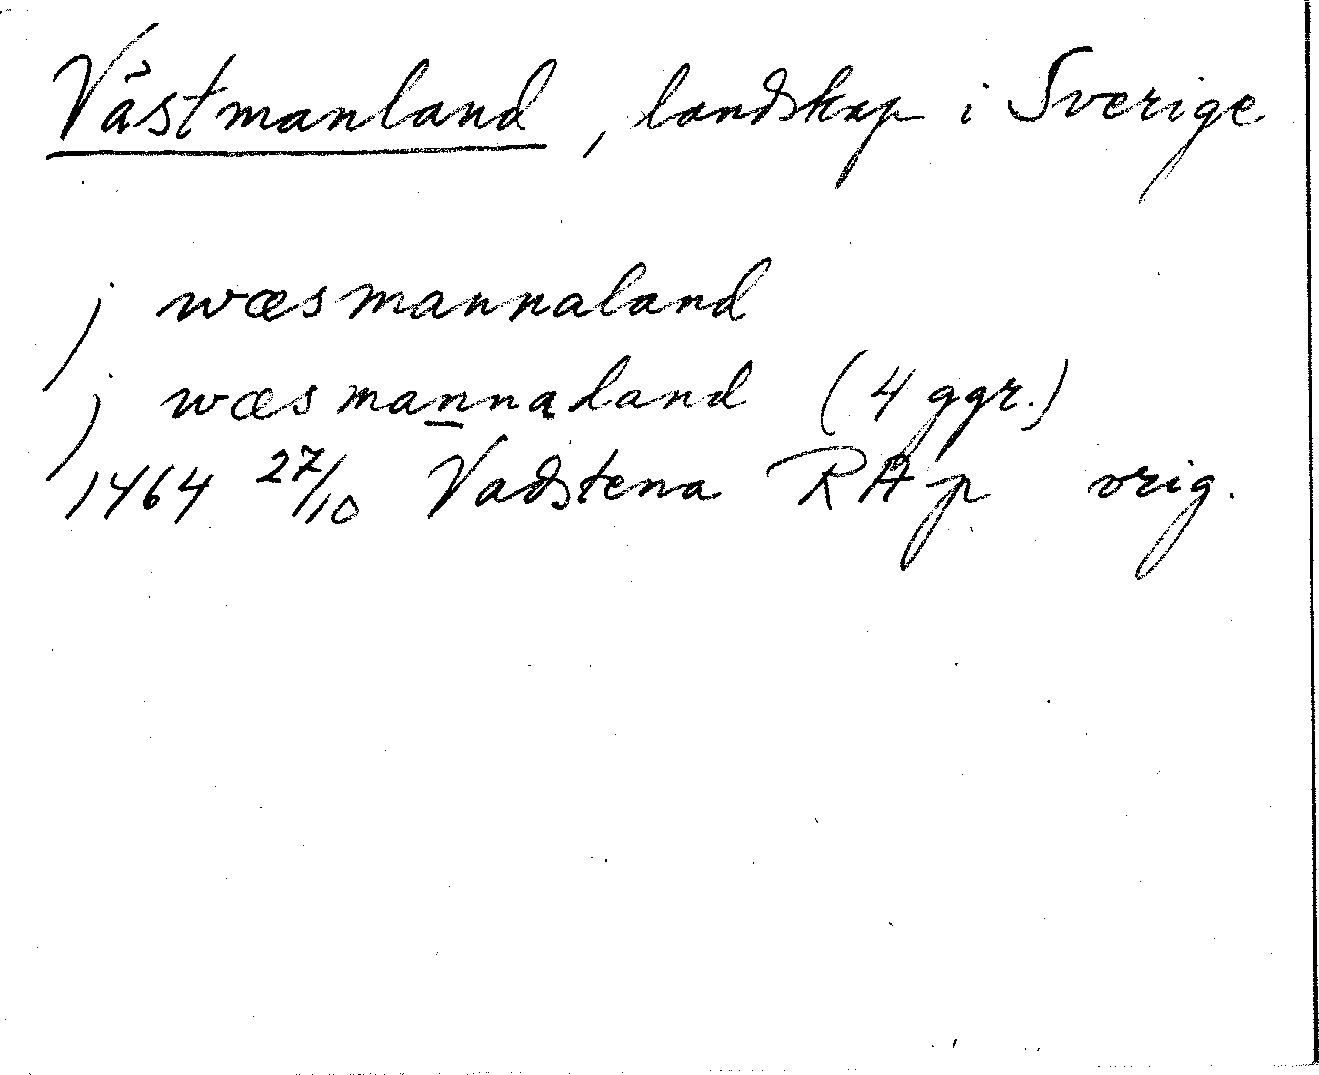 Västmanland, landskap i Sverige
j wæsmannaland
j wæsmannaland (4 ggr.)
1464 27/10 Vadstena RAp orig.